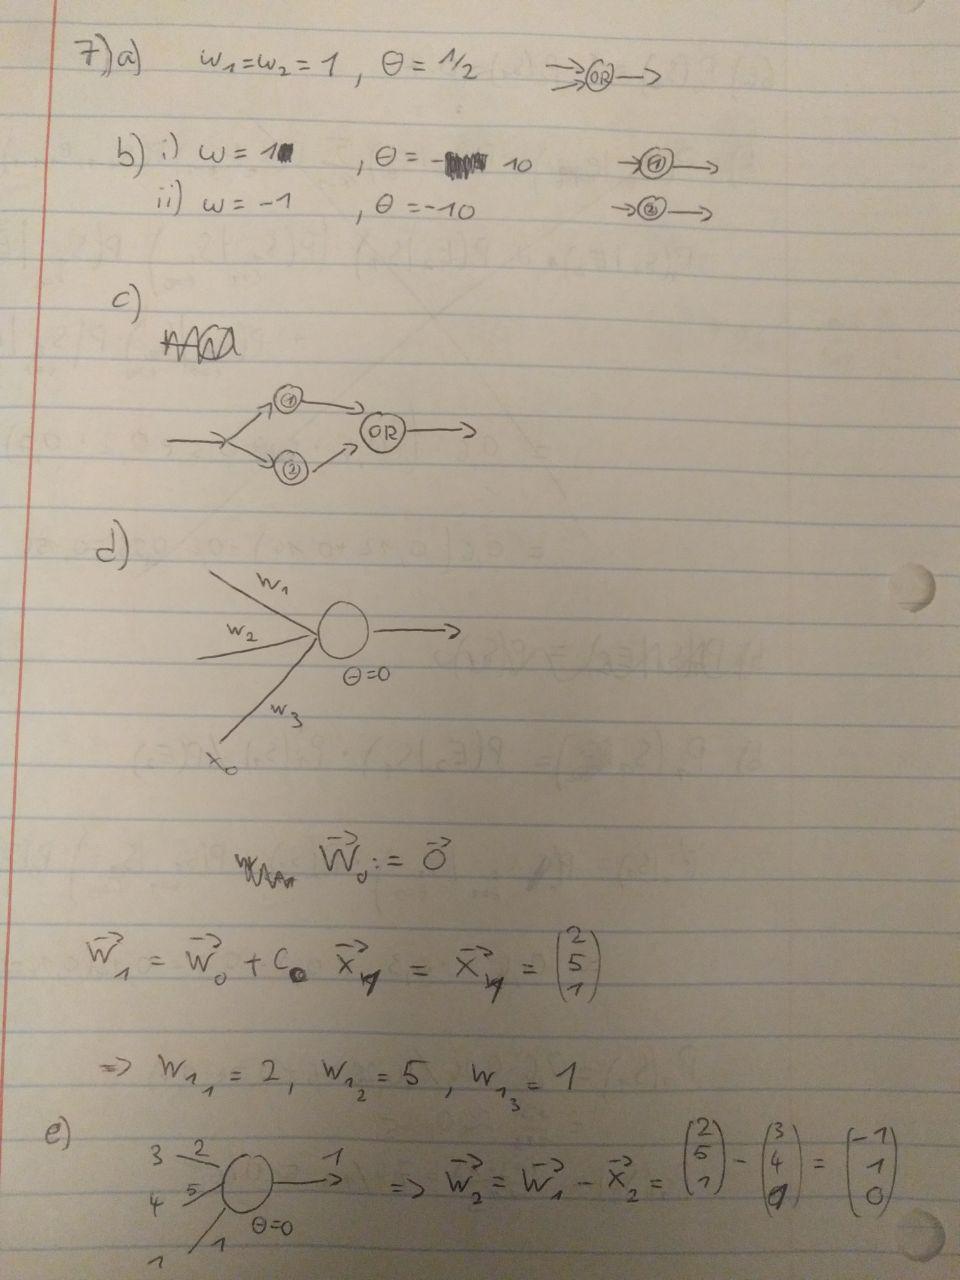 7) a) w₁=w₂=1, θ=1/2 OR
b) i) w=1, θ=-10 1
ii) w=-1, θ=-10 2
c)
1
OR
2
d)
w₁
w₂
θ=0
w₃
x₀
W⃗₀ := 0⃗
W⃗₁ = W⃗₀ + C₀ X⃗₁ = X⃗₁ = (2 5 1)
=> W₁₁ = 2, W₁₂ = 5, W₁₃ = 1
e)
3 2 1
4 5 => W⃗₂ = W⃗₁ - X⃗₂ = (2 5 1) - (3 4 1) = (-1 1 0)
θ=0
1 1